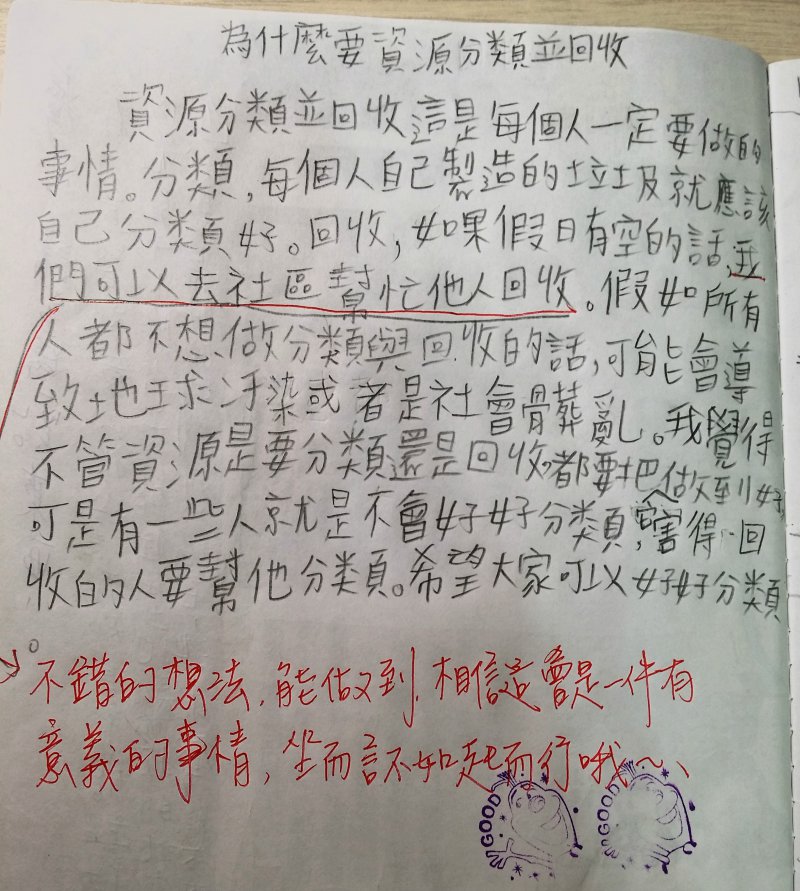 為什麼要資源分類並回收
資源分類並回收這是每個人一定要做的
事情。分類,每個人自己製造的垃圾就應該
自己分類好。回收,如果假日有空的話,我
們可以去社區幫忙他人回收。假如所有
人都不想做分類與回收的話,可能會導
致地球汙染或者是社會骨葬亂。我覺得
不管資源是要分類還是回收,都要把做到好,
可是有一些人就是不會好好分類,害得回
收的人要幫他分類。希望大家可以好好分類
。
不錯的想法,能做到,相信這會是一件有
意義的事情,坐而言不如起而行哦~、
GOOD
GOOD